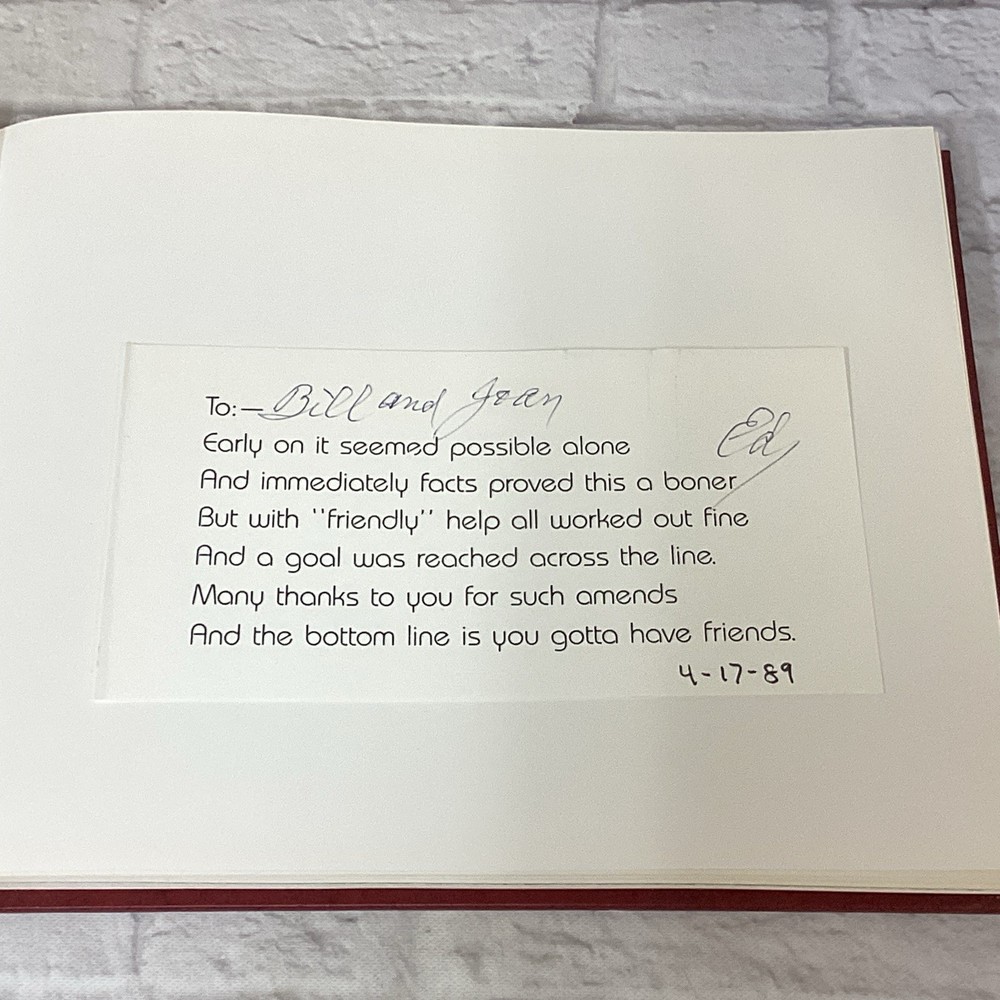 To:— Bill and Joan
Ed
Early on it seemed possible alone
And immediately facts proved this a boner
But with "friendly" help all worked out fine
And a goal was reached across the line.
Many thanks to you for such amends
And the bottom line is you gotta have friends.
4-17-89